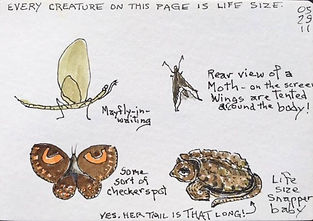 EVERY CREATURE ON THIS PAGE IS LIFE SIZE.
05
29
11
Mayfly-in-
waiting
Rear view of a
Moth - on the screen
Wings are tented
around the body!
Some
sort of
checkerspot
Life
size
Snapper
baby
YES, HER TAIL IS THAT LONG!